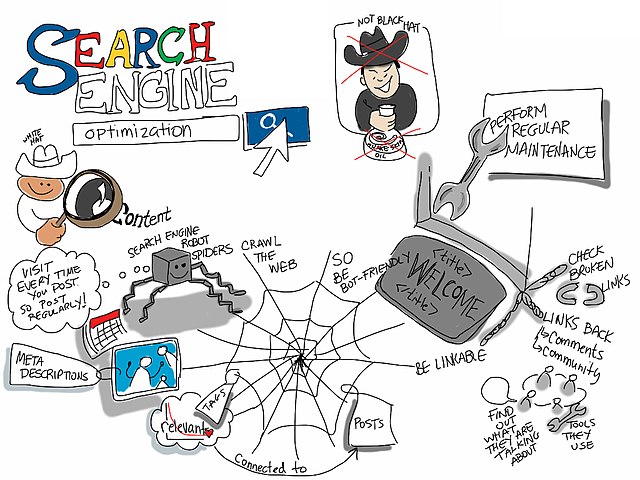 SEARCH
ENGINE
optimization
NOT BLACK HAT
OIL
PERFORM
REGULAR
MAINTENANCE
WHITE
HAT
Content
SEARCH ENGINE
ROBOT
SPIDERS
CRAWL
THE
WEB
SO
BE
BOT-FRIENDLY
<title>
WELCOME
<title>
CHECK
BROKEN
LINKS
VISIT
EVERY TIME
YOU POST
SO POST
REGULARLY!
LINKS BACK
Comments
Community
META
DESCRIPTIONS
BE LINKABLE
TAGS
relevant
POSTS
Connected to
FIND
OUT
WHAT
THEY ARE
TALKING
ABOUT
TOOLS
THEY
USE